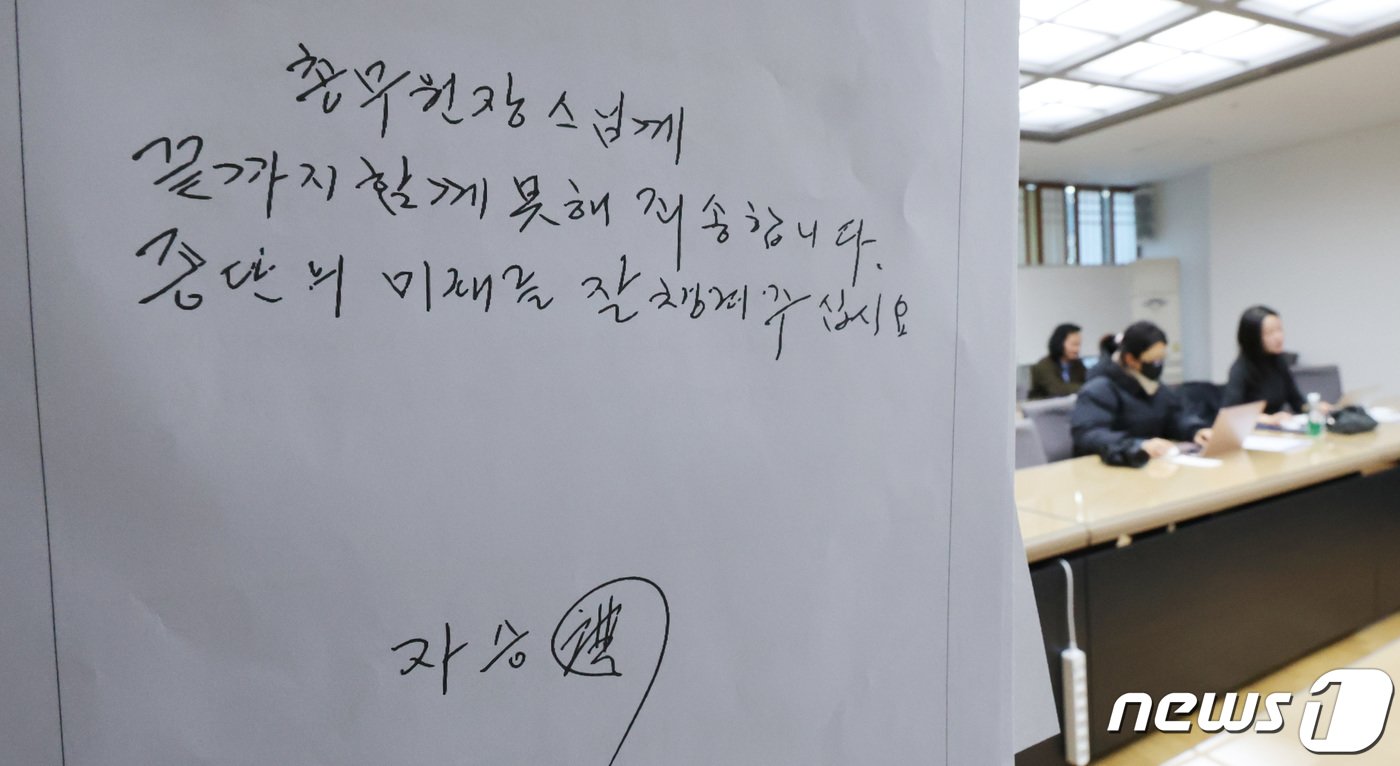 총무원장스님께
끝까지 함께 못해 죄송합니다.
종단의 미래를 잘 챙겨주십시요
자승
news1